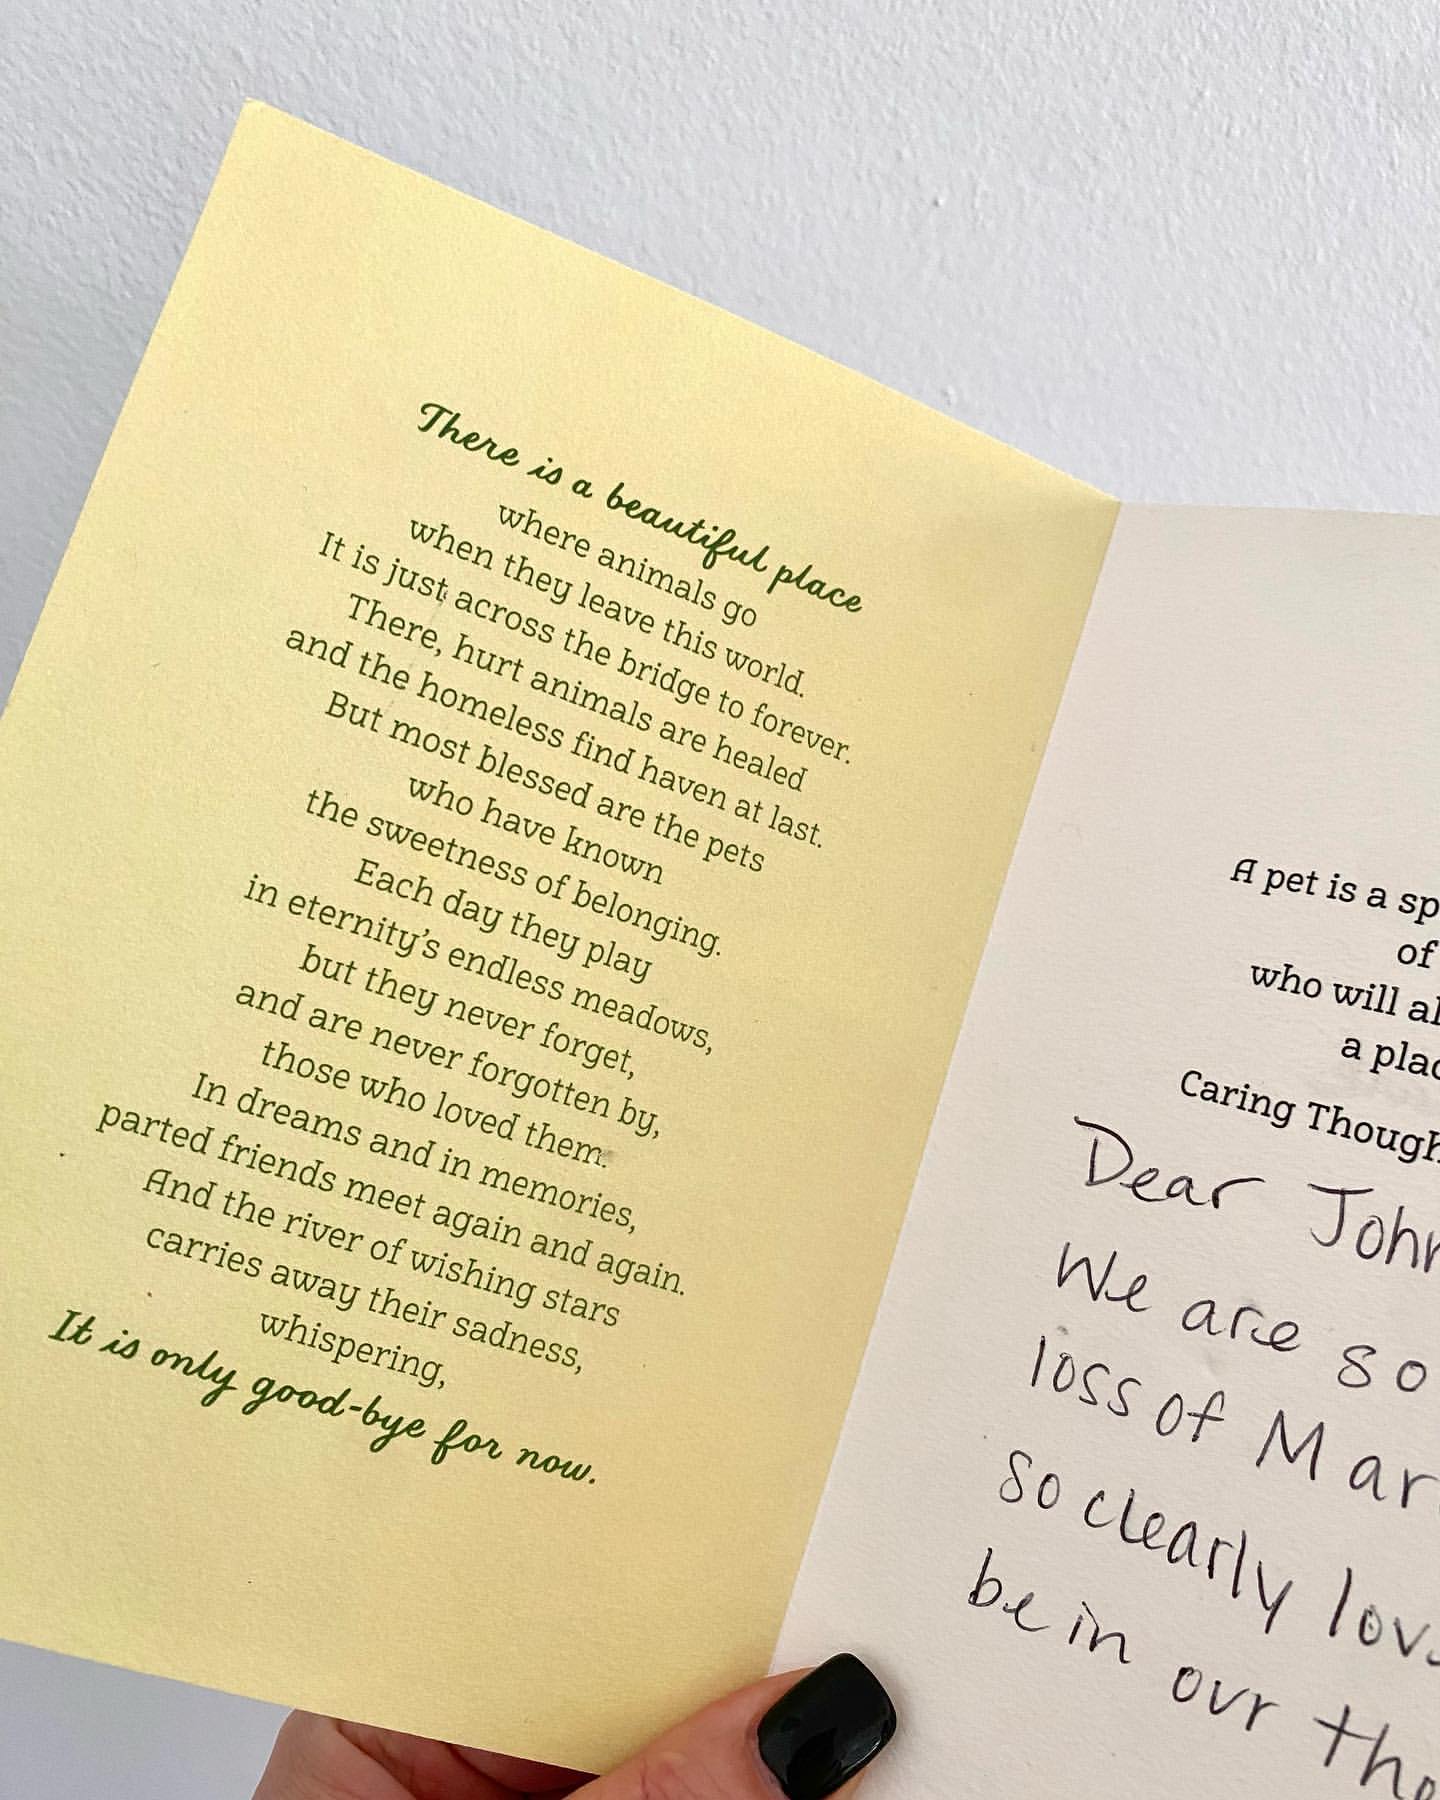 There is a beautiful place
where animals go
when they leave this world.
It is just across the bridge to forever.
There, hurt animals are healed
and the homeless find haven at last.
But most blessed are the pets
who have known
the sweetness of belonging.
Each day they play
in eternity's endless meadows,
but they never forget,
and are never forgotten by,
those who loved them.
In dreams and in memories,
parted friends meet again and again.
And the river of wishing stars
carries away their sadness,
whispering,
It is only good-bye for now.
A pet is a
of
who will
a
Caring
Dear
We are so
loss of
so clearly
be in our